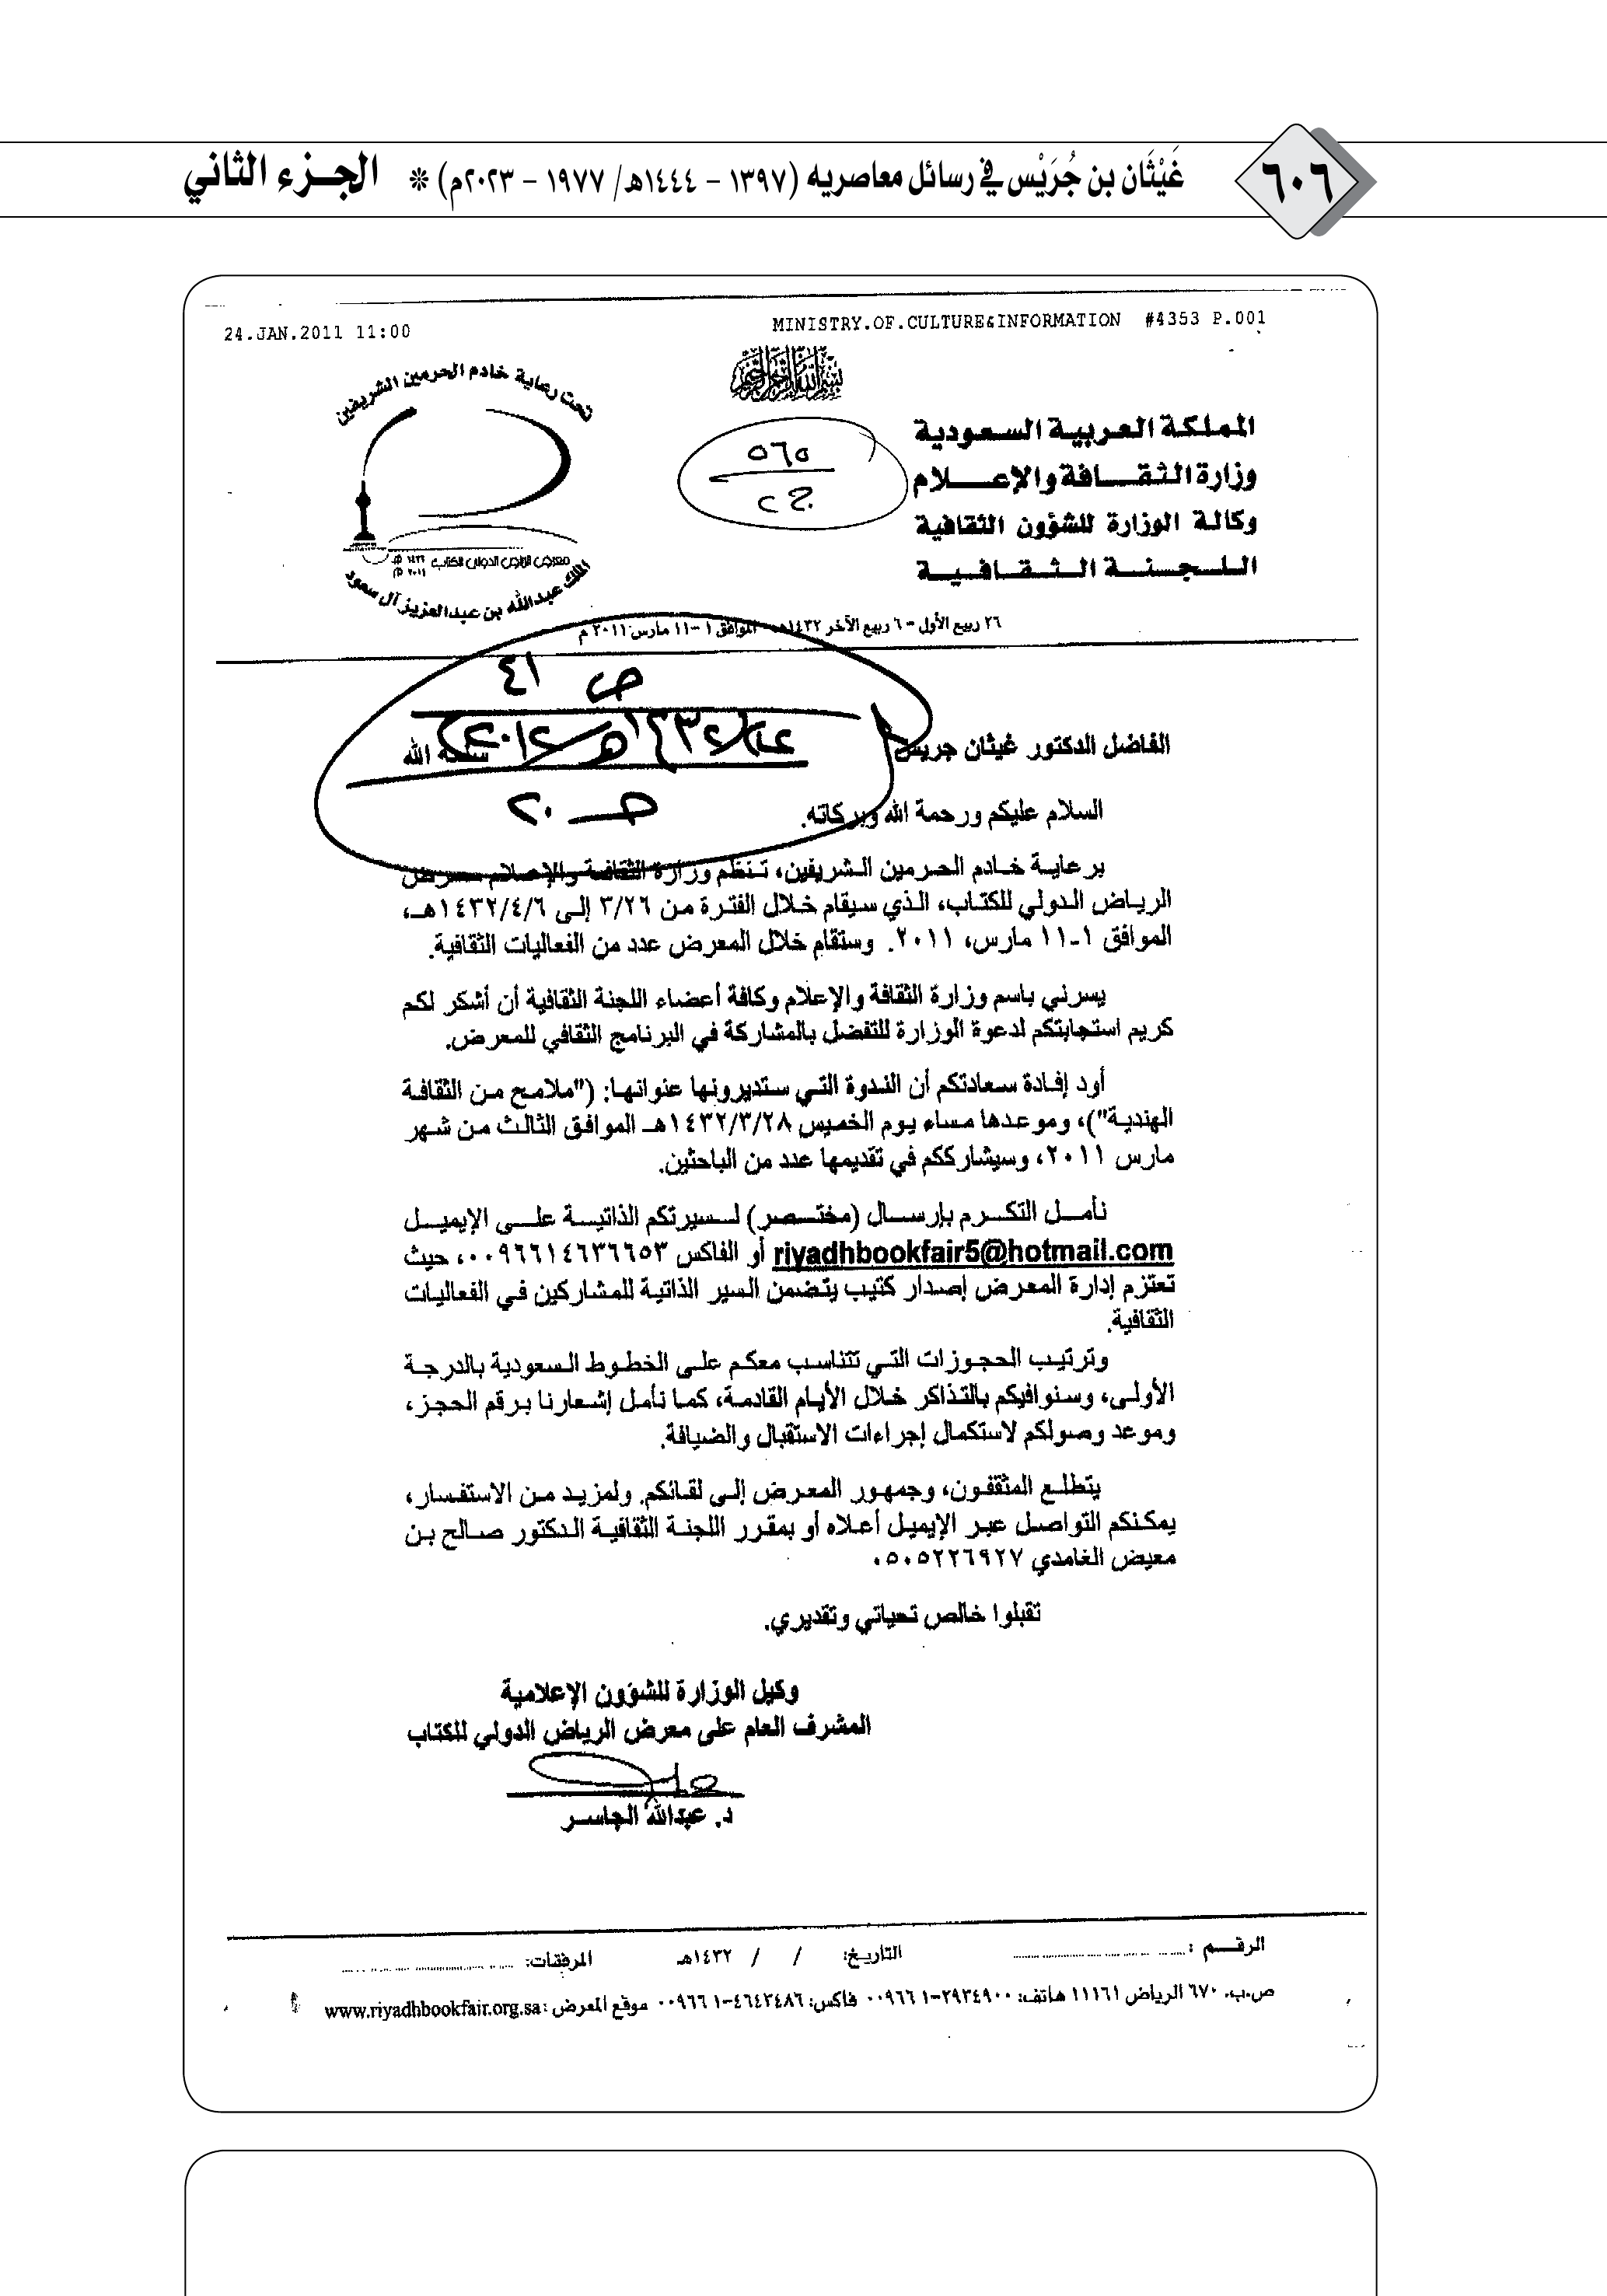 ٦٠٦
غَيْثَان بن جُرَيْس في رسائل معاصريه (١٣٩٧ - ١٤٤٤هـ/ ١٩٧٧ - ٢٠٢٣م) * الجـزء الثاني
24.JAN.2011 11:00 MINISTRY.OF.CULTURE&INFORMATION #4353 P.001
بسم الله الرحمن الرحيم
المملكة العربية السعودية
وزارة الثقافة والإعلام
وكالة الوزارة للشؤون الثقافية
اللجنة الثقافية
٥٦٥
ج٢
تحت رعاية خادم الحرمين الشريفين
معرض الرياض الدولي للكتاب ١٤٣٢هـ ٢٠١١م
الملك عبدالله بن عبدالعزيز آل سعود
٢٦ ربيع الأول - ٦ ربيع الآخر ١٤٣٢هـ الموافق ١-١١ مارس ٢٠١١م
ص ٤١
ص ٢٠
الفاضل الدكتور غيثان جريس سلمه الله
السلام عليكم ورحمة الله وبركاته.
برعاية خادم الحرمين الشريفين، تنظم وزارة الثقافة والإعلام معرض
الرياض الدولي للكتاب، الذي سيقام خلال الفترة من ٣/٢٦ إلى ١٤٣٢/٤/٦هـ،
الموافق ١-١١ مارس، ٢٠١١. وستقام خلال المعرض عدد من الفعاليات الثقافية.
يسرني باسم وزارة الثقافة والإعلام وكافة أعضاء اللجنة الثقافية أن أشكر لكم
كريم استجابتكم لدعوة الوزارة للتفضل بالمشاركة في البرنامج الثقافي للمعرض.
أود إفادة سعادتكم أن الندوة التي ستديرونها عنوانها: ("ملامح من الثقافة
الهندية")، وموعدها مساء يوم الخميس ١٤٣٢/٣/٢٨هـ الموافق الثالث من شهر
مارس ٢٠١١، وسيشارككم في تقديمها عدد من الباحثين.
نأمل التكرم بإرسال (مختصر) لسيرتكم الذاتية على الإيميل
riyadhbookfair5@hotmail.com أو الفاكس ٠٠٩٦٦١٤٦٣٦٦٥٣، حيث
تعتزم إدارة المعرض إصدار كتيب يتضمن السير الذاتية للمشاركين في الفعاليات
الثقافية.
وترتيب الحجوزات التي تتناسب معكم على الخطوط السعودية بالدرجة
الأولى، وسنوافيكم بالتذاكر خلال الأيام القادمة، كما نأمل إشعارنا برقم الحجز،
وموعد وصولكم لاستكمال إجراءات الاستقبال والضيافة.
يتطلع المثقفون، وجمهور المعرض إلى لقائكم. ولمزيد من الاستفسار،
يمكنكم التواصل عبر الإيميل أعلاه أو بمقرر اللجنة الثقافية الدكتور صالح بن
معيض الغامدي ٠٥٠٥٢٢٦٩٢٧
تقبلوا خالص تحياتي وتقديري.
وكيل الوزارة للشؤون الإعلامية
المشرف العام على معرض الرياض الدولي للكتاب
د. عبدالله الجاسر
الرقم : التاريخ: / / ١٤٣٢هـ المرفقات:
ص.ب. ٦٧٠ الرياض ١١١٦١ هاتف: ٢٩٣٤٩٠٠-١ ٠٠٩٦٦ فاكس: ٤٦٤٣٤٨٦-١ ٠٠٩٦٦ موقع المعرض: www.riyadhbookfair.org.sa